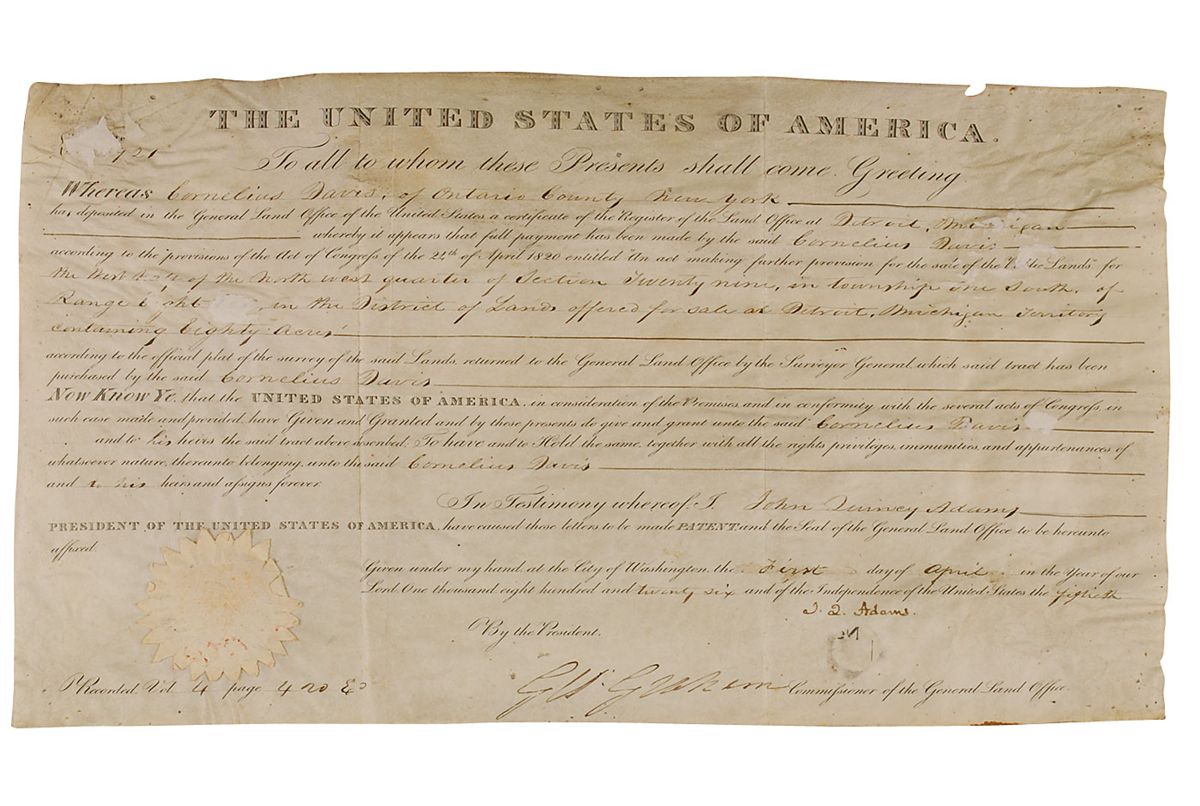 THE UNITED STATES OF AMERICA.
721
To all to whom these Presents shall come Greeting
Whereas Cornelius Davis, of Ontario County New York
has deposited in the General Land Office of the United States a certificate of the Register of the Land Office at Detroit, Michigan
whereby it appears that full payment has been made by the said Cornelius Davis
according to the provisions of the Act of Congress of the 24th of April 1820 entitled An act making further provision for the sale of the Lands for
the West of the North west quarter of Section Twenty nine, in township one South, of
Range in the District of Lands offered for sale at Detroit, Michigan Territory
containing Eighty Acres
according to the official plat of the survey of the said Lands returned to the General Land Office by the Surveyor General which said tract has been
purchased by the said Cornelius Davis
Now Know Ye, that the UNITED STATES OF AMERICA, in consideration of the Premises, and in conformity with the several acts of Congress, in
such case made and provided, have Given and Granted and by these presents do give and grant unto the said Cornelius Davis
and to his heirs the said tract above described: To have and to Hold the same, together with all the rights, privileges, immunities, and appurtenances of
whatsoever nature, thereunto belonging, unto the said Cornelius Davis
and to his heirs and assigns forever.
In Testimony whereof, I, John Quincy Adams
PRESIDENT OF THE UNITED STATES OF AMERICA, have caused these letters to be made PATENT and the Seal of the General Land Office to be hereunto
affixed.
Given under my hand, at the City of Washington, the First day of April in the Year of our
Lord One thousand, eight hundred and twenty six and of the Independence of the United States the fiftieth
J. Q. Adams.
By the President.
Commissioner of the General Land Office.
Recorded, Vol 4 page 420